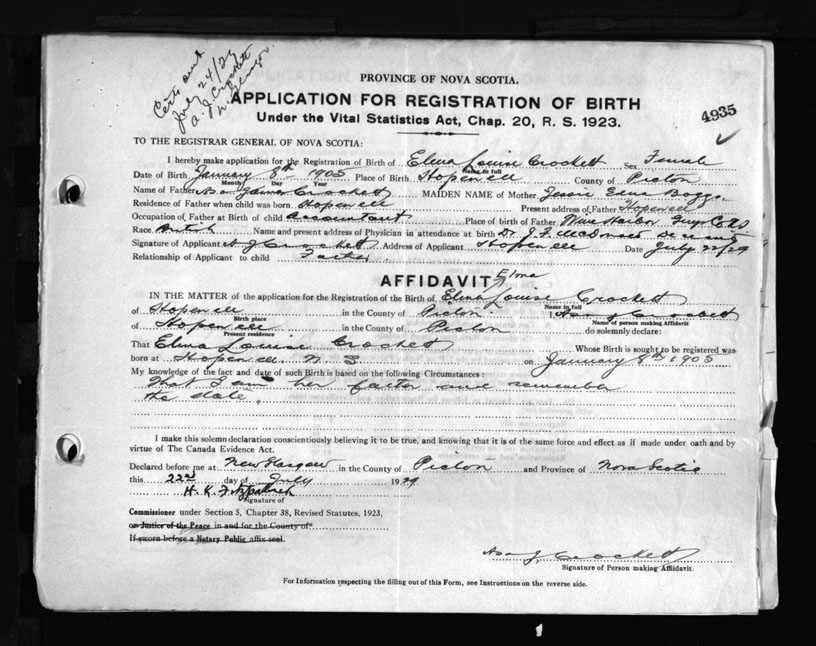 Certs sent
July 24/29
A. J. Crockett
PROVINCE OF NOVA SCOTIA.
APPLICATION FOR REGISTRATION OF BIRTH
4935
Under the Vital Statistics Act, Chap. 20, R. S. 1923.
TO THE REGISTRAR GENERAL OF NOVA SCOTIA:
I hereby make application for the Registration of Birth of Elma Louise Crockett Sex Female
Name in full
Date of Birth January 8th 1905 Place of Birth Hopewell County of Pictou
Month Day Year
Name of Father Asa James Crockett MAIDEN NAME of Mother Jessie
Residence of Father when child was born Hopewell Present address of Father Hopewell
Occupation of Father at Birth of child Accountant Place of birth of Father Harbor Guys Co NS
Race British Name and present address of Physician in attendance at birth Dr. J. F. McDonald
Signature of Applicant A J Crockett Address of Applicant Hopewell Date July 22/29
Relationship of Applicant to child Father
AFFIDAVIT
Elma
IN THE MATTER of the application for the Registration of the Birth of Elma Louise Crockett
Name in full
of Hopewell in the County of Pictou I Asa J Crockett
Birth place Name of person making Affidavit
of Hopewell in the County of Pictou do solemnly declare:
Present residence
That Elma Louise Crockett Whose Birth is sought to be registered was
born at Hopewell N S on January 8th 1905
My knowledge of the fact and date of such Birth is based on the following Circumstances:
That I am her father and remember
the date.
I make this solemn declaration conscientiously believing it to be true, and knowing that it is of the same force and effect as if made under oath and by
virtue of The Canada Evidence Act.
Declared before me at New Glasgow in the County of Pictou and Province of Nova Scotia
this 22nd day of July 1929
H. K. Fitzpatrick
Signature of
Commissioner under Section 5, Chapter 38, Revised Statutes, 1923,
or Justice of the Peace in and for the County of
If sworn before a Notary Public affix seal.
Asa J Crockett
Signature of Person making Affidavit.
For Information respecting the filling out of this Form, see Instructions on the reverse side.